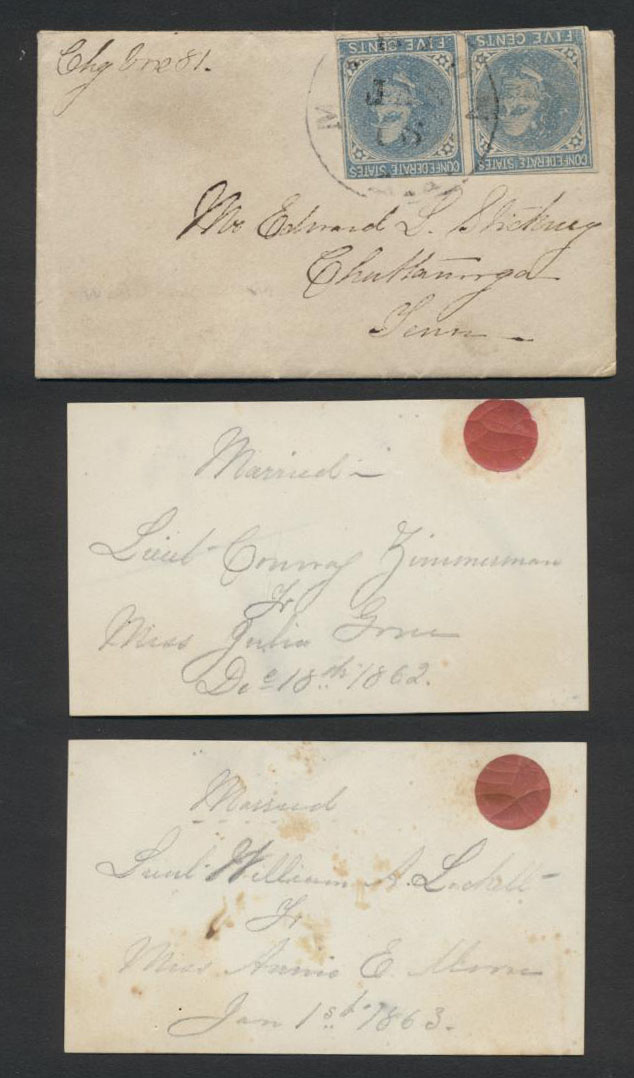 Chg Box 81.
FIVE CENTS
FIVE CENTS
CONFEDERATE STATES
CONFEDERATE STATES
Mr Edward L. Stickney
Chattanooga
Tenn
Married
Lieut Conway Zimmerman
To
Miss Julia
Dec 18th 1862.
Married
Lieut William A. Lockett
To
Miss Annie E.
Jan 1st 1863.